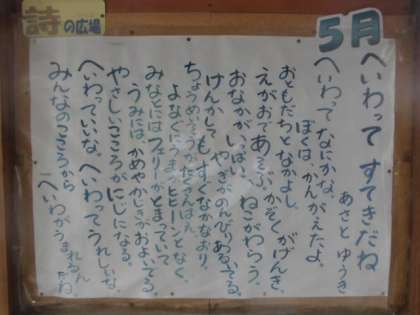 詩の広場
5月
へいわって すてきだね
あさと ゆうき
へいわって なにかな。
ぼくは、かんがえたよ。
おともだちと なかよし。
かぞくが げんき。
えがおで あそぶ。
ねこがわらう。
おなかが いっぱい。
やぎが のんびり あるいてる。
けんかしても すぐなかなおり。
ちょうめいそうが たくさんはえ、
よなぐにうまが、ヒヒーンとなく。
みなとには フェリーが とまっていて、
うみには、かめや かじきが およいでる。
やさしい こころが にじになる。
へいわっていいね。へいわって うれしいね。
みんなの こころから、
へいわがうまれるんだね。